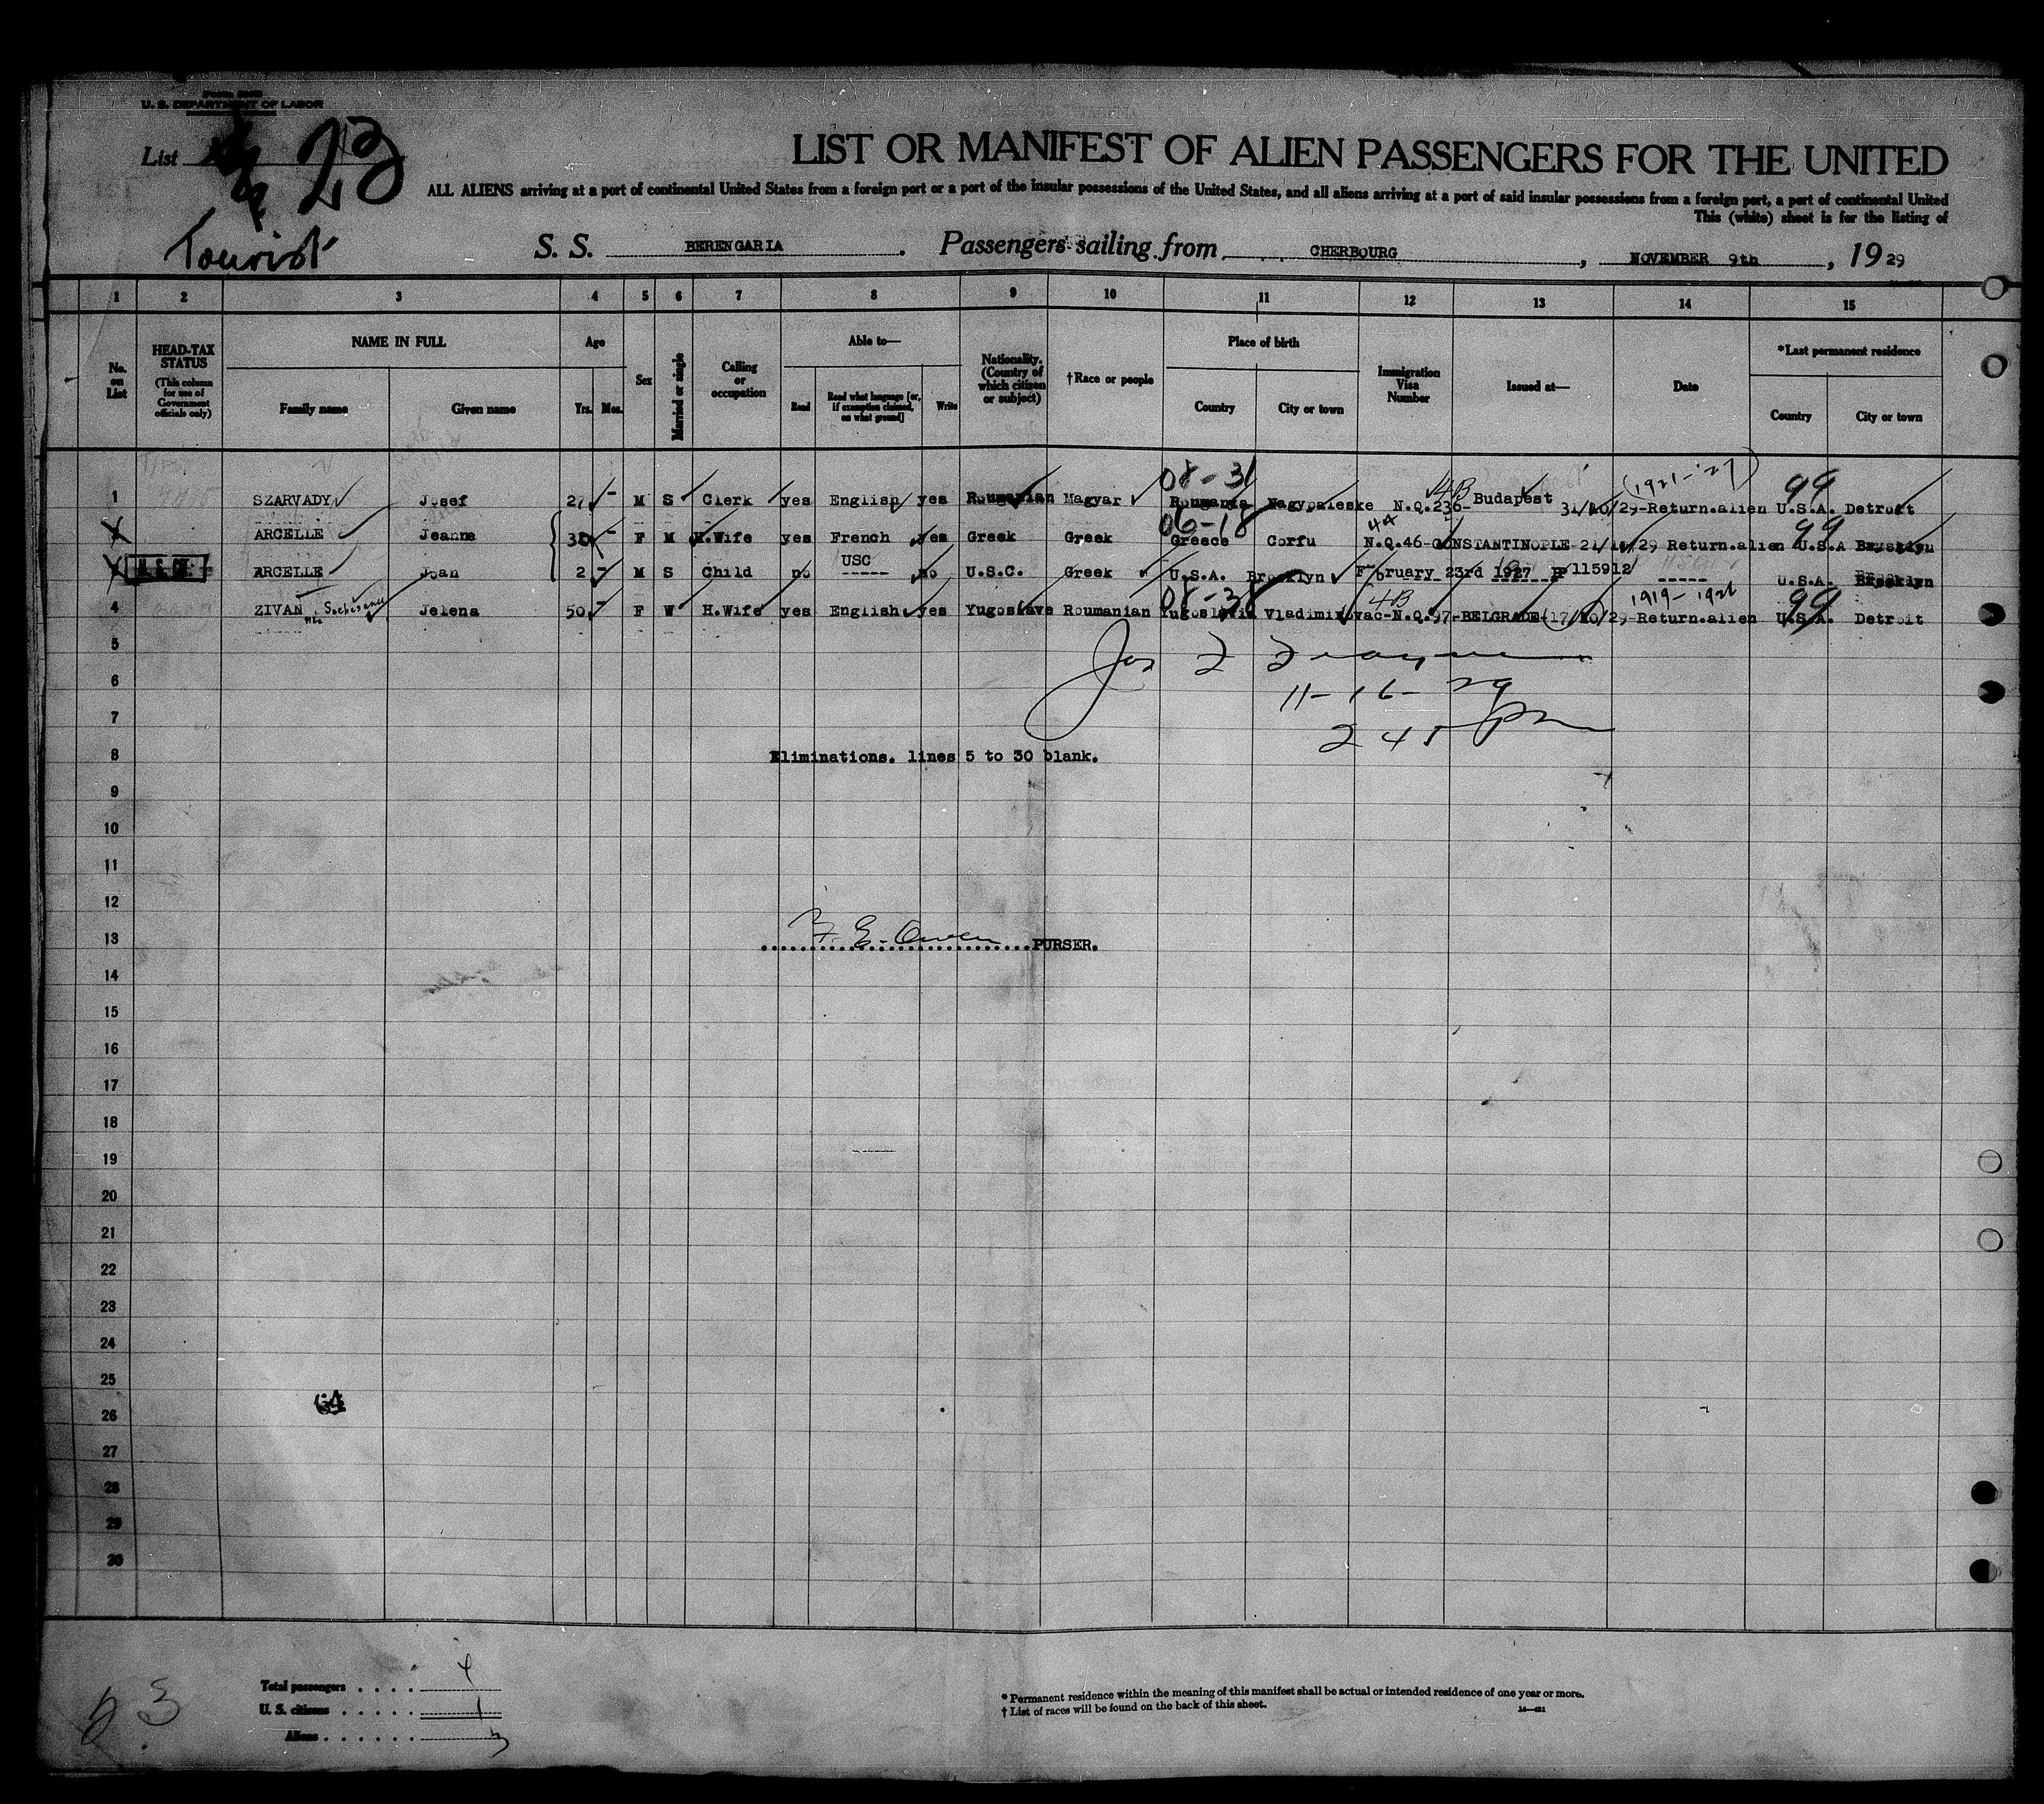 U. S. DEPARTMENT OF LABOR
List 23
LIST OR MANIFEST OF ALIEN PASSENGERS FOR THE UNITED
ALL ALIENS arriving at a port of continental United States from a foreign port or a port of the insular possessions of the United States, and all aliens arriving at a port of said insular possessions from a foreign port, a port of continental United
This (white) sheet is for the listing of
Tourist
S. S. BERENGARIA. Passengers sailing from CHERBOURG, NOVEMBER 9th, 1929
1 2 3 4 5 6 7 8 9 10 11 12 13 14 15
No. on List
HEAD-TAX STATUS
(This column for use of Government officials only)
NAME IN FULL
Family name
Given name
Age
Yrs. Mos.
Sex
Married or single
Calling or occupation
Able to—
Read
Read what language [or, if exemption claimed, on what ground]
Write
Nationality. (Country of which citizen or subject)
†Race or people
Place of birth
Country
City or town
Immigration Visa Number
Issued at—
Date
*Last permanent residence
Country
City or town
08-31 4B (1921-'27) 99
1 SZARVADY Josef 27 - M S Clerk yes English yes Roumanian Magyar Roumania Nagypaleske N.Q.236- Budapest 31/10/29-Return.alien U.S.A. Detroit
06-18 4A 99
ARCELLE Jeanne 30 - F M H.Wife yes French yes Greek Greek Greece Corfu N.Q.46-CONSTANTINOPLE-21/10/29 Return.alien U.S.A Brooklyn
USC
ARCELLE Joan 2 - M S Child no ----- no U.S.C. Greek U.S.A. Brooklyn February 23rd 1927 PP 115912 ----- U.S.A. Brooklyn
08-38 4B 1919-1926 99
4 ZIVAN Jelena 50 - F W H.Wife yes English yes Yugoslave Roumanian Yugoslavia Vladimirovac-N.Q.97-BELGRADE-17/10/29-Return.alien U.S.A. Detroit
5
6
11-16-29
7
245 pm
8 Eliminations. lines 5 to 30 blank.
9
10
11
12
13 F. E. Owen PURSER.
14
15
16
17
18
19
20
21
22
23
24
25
26
27
28
29
30
Total passengers . . . . 4
U. S. citizens . . . . . 1
Aliens . . . . . . 3
* Permanent residence within the meaning of this manifest shall be actual or intended residence of one year or more.
† List of races will be found on the back of this sheet.